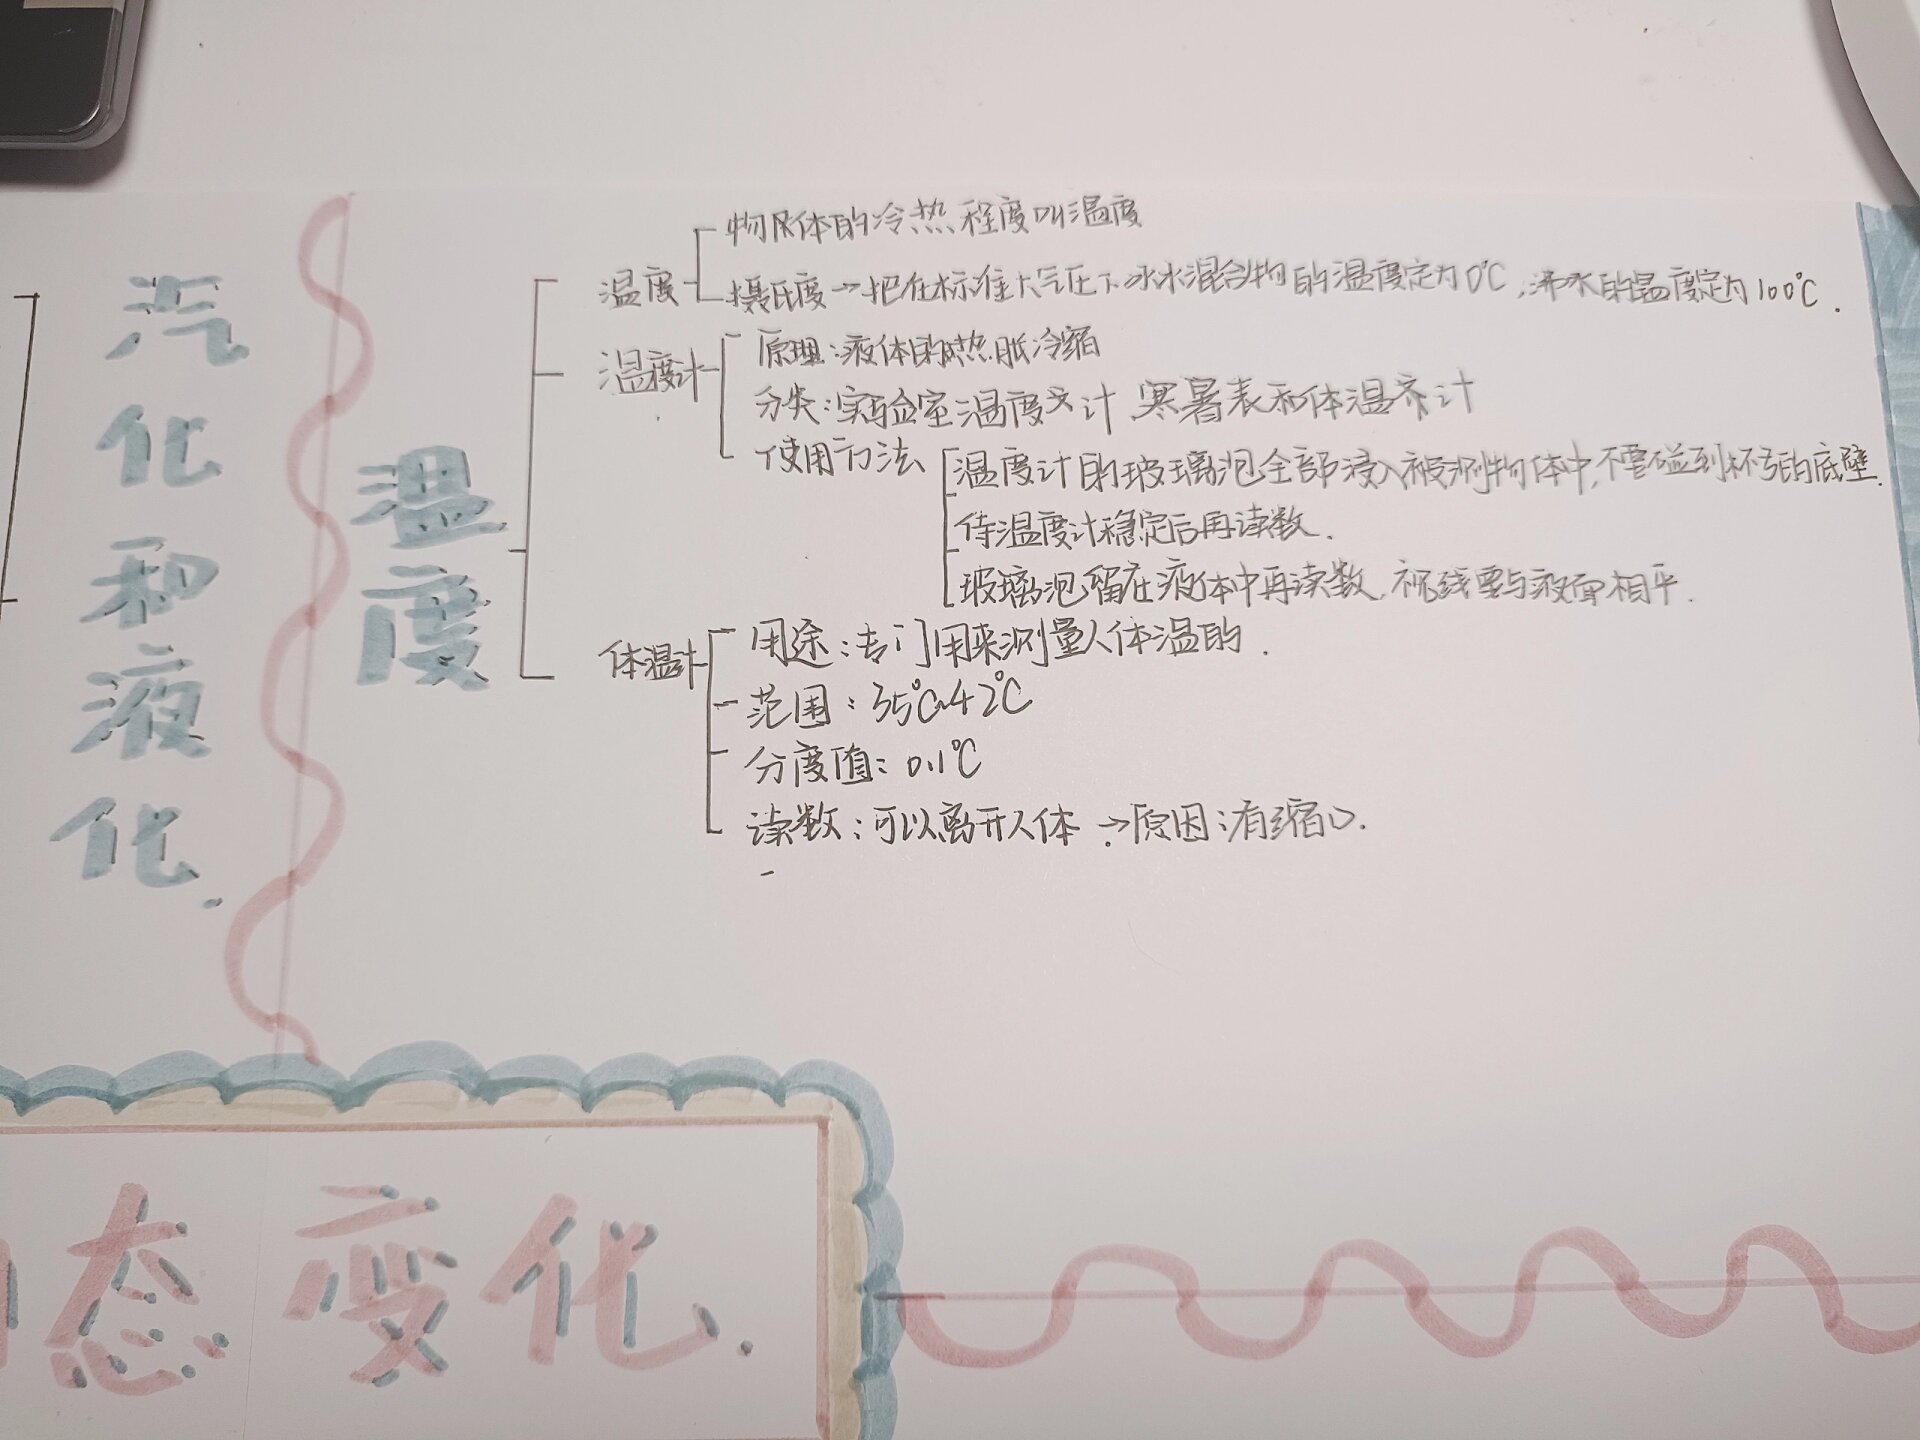 汽化和液化.
温度
温度
物体的冷热程度叫温度
摄氏度→把在标准大气压下冰水混合物的温度定为0℃,沸水的温度定为100℃.
温度计
原理:液体的热胀冷缩
分类:实验室温度计 寒暑表和体温计
使用方法
温度计的玻璃泡全部浸入被测物体中,不要碰到杯的底壁.
待温度计稳定后再读数.
玻璃泡留在液体中再读数,视线要与液面相平.
体温计
用途:专门用来测量人体温的.
范围:35℃~42℃
分度值:0.1℃
读数:可以离开人体→原因:有缩口.
态变化.